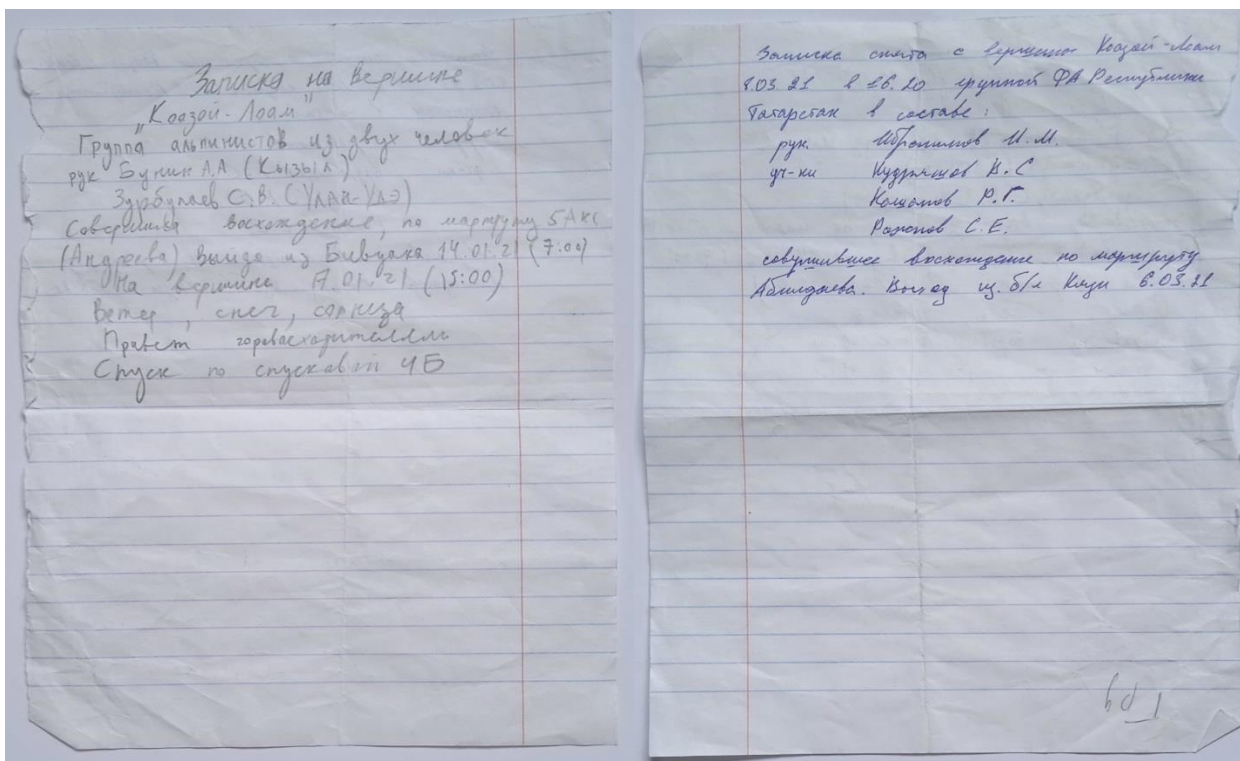 Записка на вершине
"Коазой-Лоам"
Группа альпинистов из двух человек
рук Бунин А.А (Кызыл)
Зурбулаев С.В. (Улан-Удэ)
Совершила восхождение, по маршруту 5А кс
(Андреева) Выйдя из Бивуака 14.01.21 (7:00)
На вершине 17.01.21 (15:00)
Ветер, снег, солнца
Привет горовосходителям
Спуск по спусковой 4Б
Записка снята с вершины Коазой-Лоам
8.03.21 в 16.20 группой ФА Республики
Татарстан в составе:
рук. Ибрагимов И.М.
уч-ки Кудряшов В.С
Кашапов Р.Г.
Рахопов С.Е.
совершившее восхождение по маршруту
Абилдаева. Выход из б/л Кязи 6.03.21